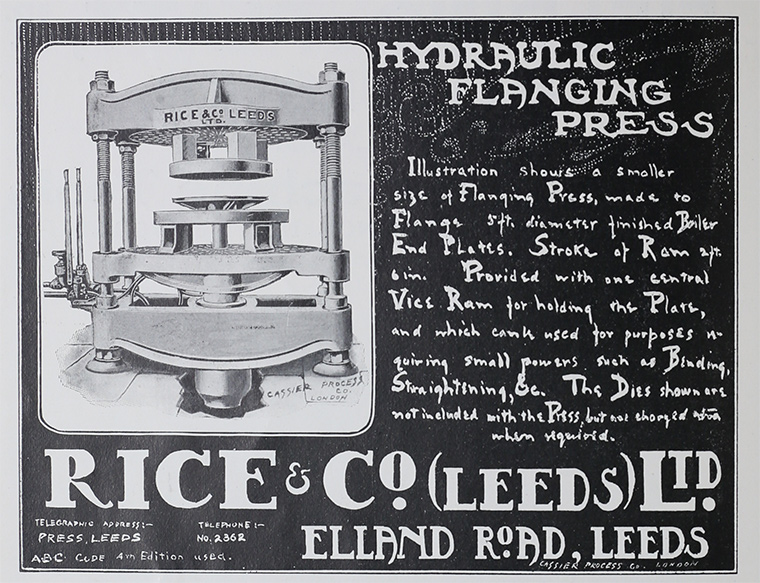 HYDRAULIC
FLANGING
PRESS
RICE & Co LEEDS
LTD.
Illustration shows a smaller
size of Flanging Press, made to
Flange 5ft. diameter finished Boiler
End Plates. Stroke of Ram 2ft.
6 in. Provided with one central
Vice Ram for holding the Plate,
and which can be used for purposes re-
quiring small powers such as Bending,
Straightening, &c. The Dies shown are
not included with the Press, but are charged extra
when required.
CASSIER PROCESS
CO.
LONDON
RICE & Co (LEEDS) LTD.
TELEGRAPHIC ADDRESS:-
PRESS, LEEDS
TELEPHONE:-
No. 2362
ABC CODE 4TH Edition used.
ELLAND ROAD, LEEDS
CASSIER PROCESS Co. LONDON